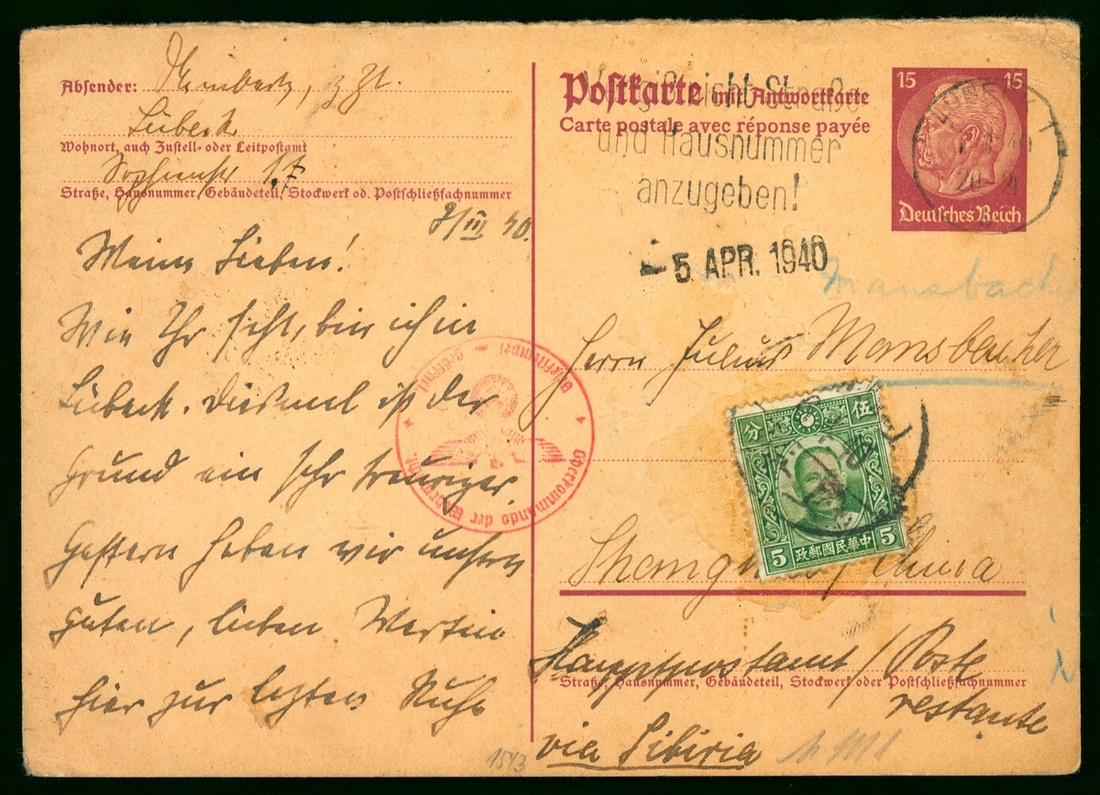 Absender: z. Zt.
Lübeck
Wohnort, auch Zustell- oder Leitpostamt
Straße, Hausnummer, Gebäudeteil, Stockwerk od. Postschließfachnummer
III 40.
Meine Lieben!
Wie Ihr seht, bin ich in
Lübeck. Diesmal ist der
Grund ein sehr trauriger.
Gestern haben wir unsern
guten, lieben Martin
hier zur letzten Ruhe
1543
Oberkommando der Wehrmacht
Geöffnet
Postkarte mit Antwortkarte
Carte postale avec réponse payée
nicht Straße
und Hausnummer
anzugeben!
15 15
Deutsches Reich
- 5 APR. 1940
Mansbacher
Herrn Julius Mansbacher
伍
分
5 政郵國民華中 5
Shanghai / China
Hauptpostamt / Poste
Straße, Hausnummer, Gebäudeteil, Stockwerk oder Postschließfachnummer
restante
via Sibiria